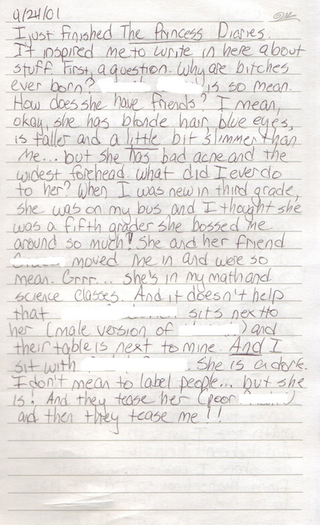 9/24/01
I just finished The Princess Diaries.
It inspired me to write in here about
stuff. First, a question. Why are bitches
ever born? is so mean.
How does she have friends? I mean,
okay, she has blonde hair, blue eyes,
is taller and a little bit slimmer than
me... but she has bad acne and the
widest forehead. What did I ever do
to her? When I was new in third grade,
she was on my bus and I thought she
was a fifth grader she bossed me
around so much! She and her friend
moved me in and were so
mean. Grrr... she's in my math and
science classes. And it doesn't help
that sits next to
her (male version of ) and
their table is next to mine. And I
sit with . She is a dork.
I don't mean to label people... but she
is! And they tease her (poor )
and then they tease me!!